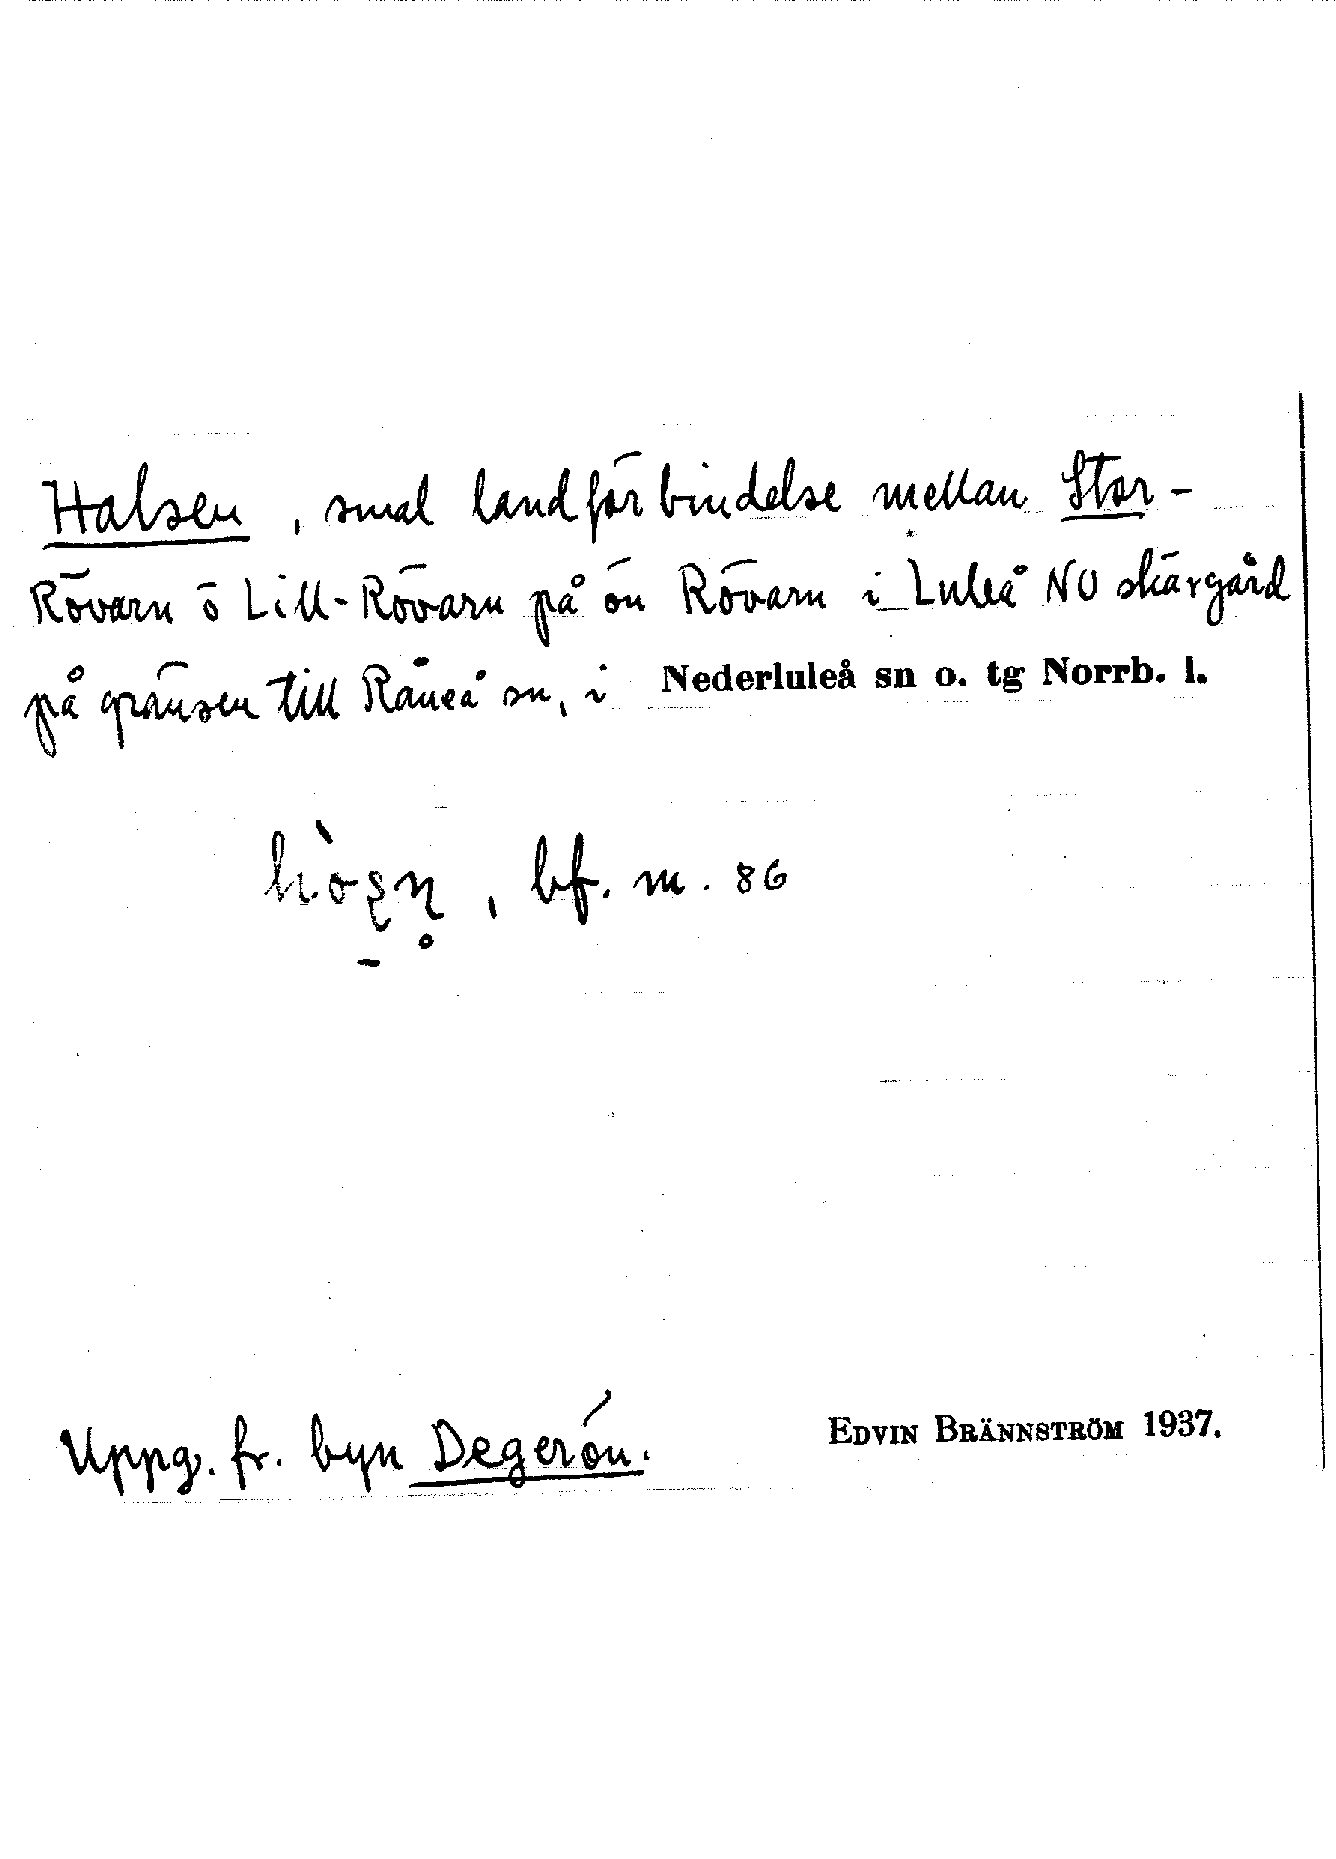 Halsen, smal landförbindelse mellan Stor-
Rövarn ö Lill-Rövarn på ön Rövarn i Luleå NO skärgård
på gränsen till Råneå sn, i Nederluleå sn o. tg Norrb. l.
, bf. m. 86
Uppg. fr. byn Degerön.
EDVIN BRÄNNSTRÖM 1937.